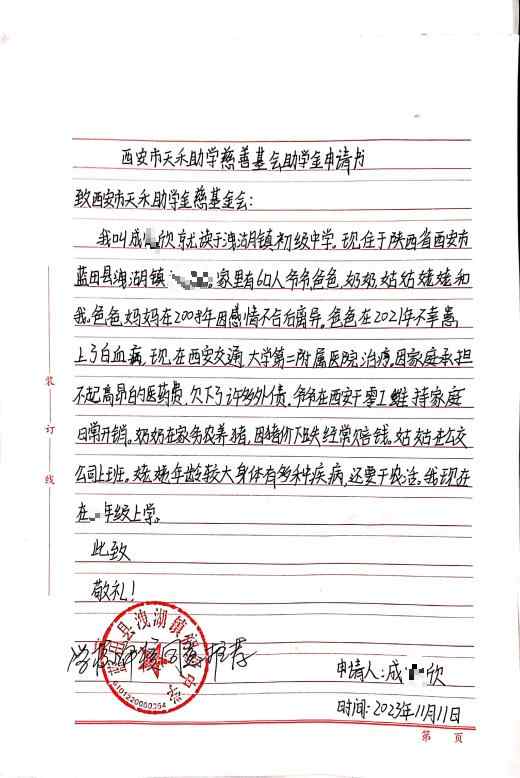 西安市天禾助学慈善基金会助学金申请书
致西安市天禾助学金慈基金会:
我叫成欣就读于洩湖镇初级中学,现住于陕西省西安市
蓝田县洩湖镇 家里有6口人爷爷爸爸,奶奶,姑姑娓娓和
我。爸爸,妈妈在2008年因感情不合后离异。爸爸在2021年不幸患
上了白血病,现在西安交通大学第二附属医院治疗,因家庭承担
不起高昂的医药费,欠下了许多外债。爷爷在西安干零工维持家庭
日常开销。奶奶在家务农养猪,因猪价下跌经常赔钱。姑姑在公交
公司上班。娓娓年龄较大身体有多种疾病,还要干农活。我现在
在 年级上学。
此致
敬礼!
学校审核同意推荐
蓝田县洩湖镇初级中学
6101220060354
申请人:成 欣
时间:2023年11月11日
装
订
线
第 页